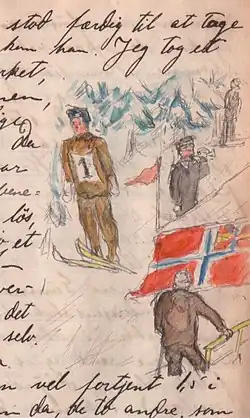 stod færdig til at tage
kom han. Jeg tog et
rket,
nen,
ige
da
ar
pene=
løs
ét
ver-
det
selv.
n vel fortjent 1,5 i
in da, de to andre, som
1